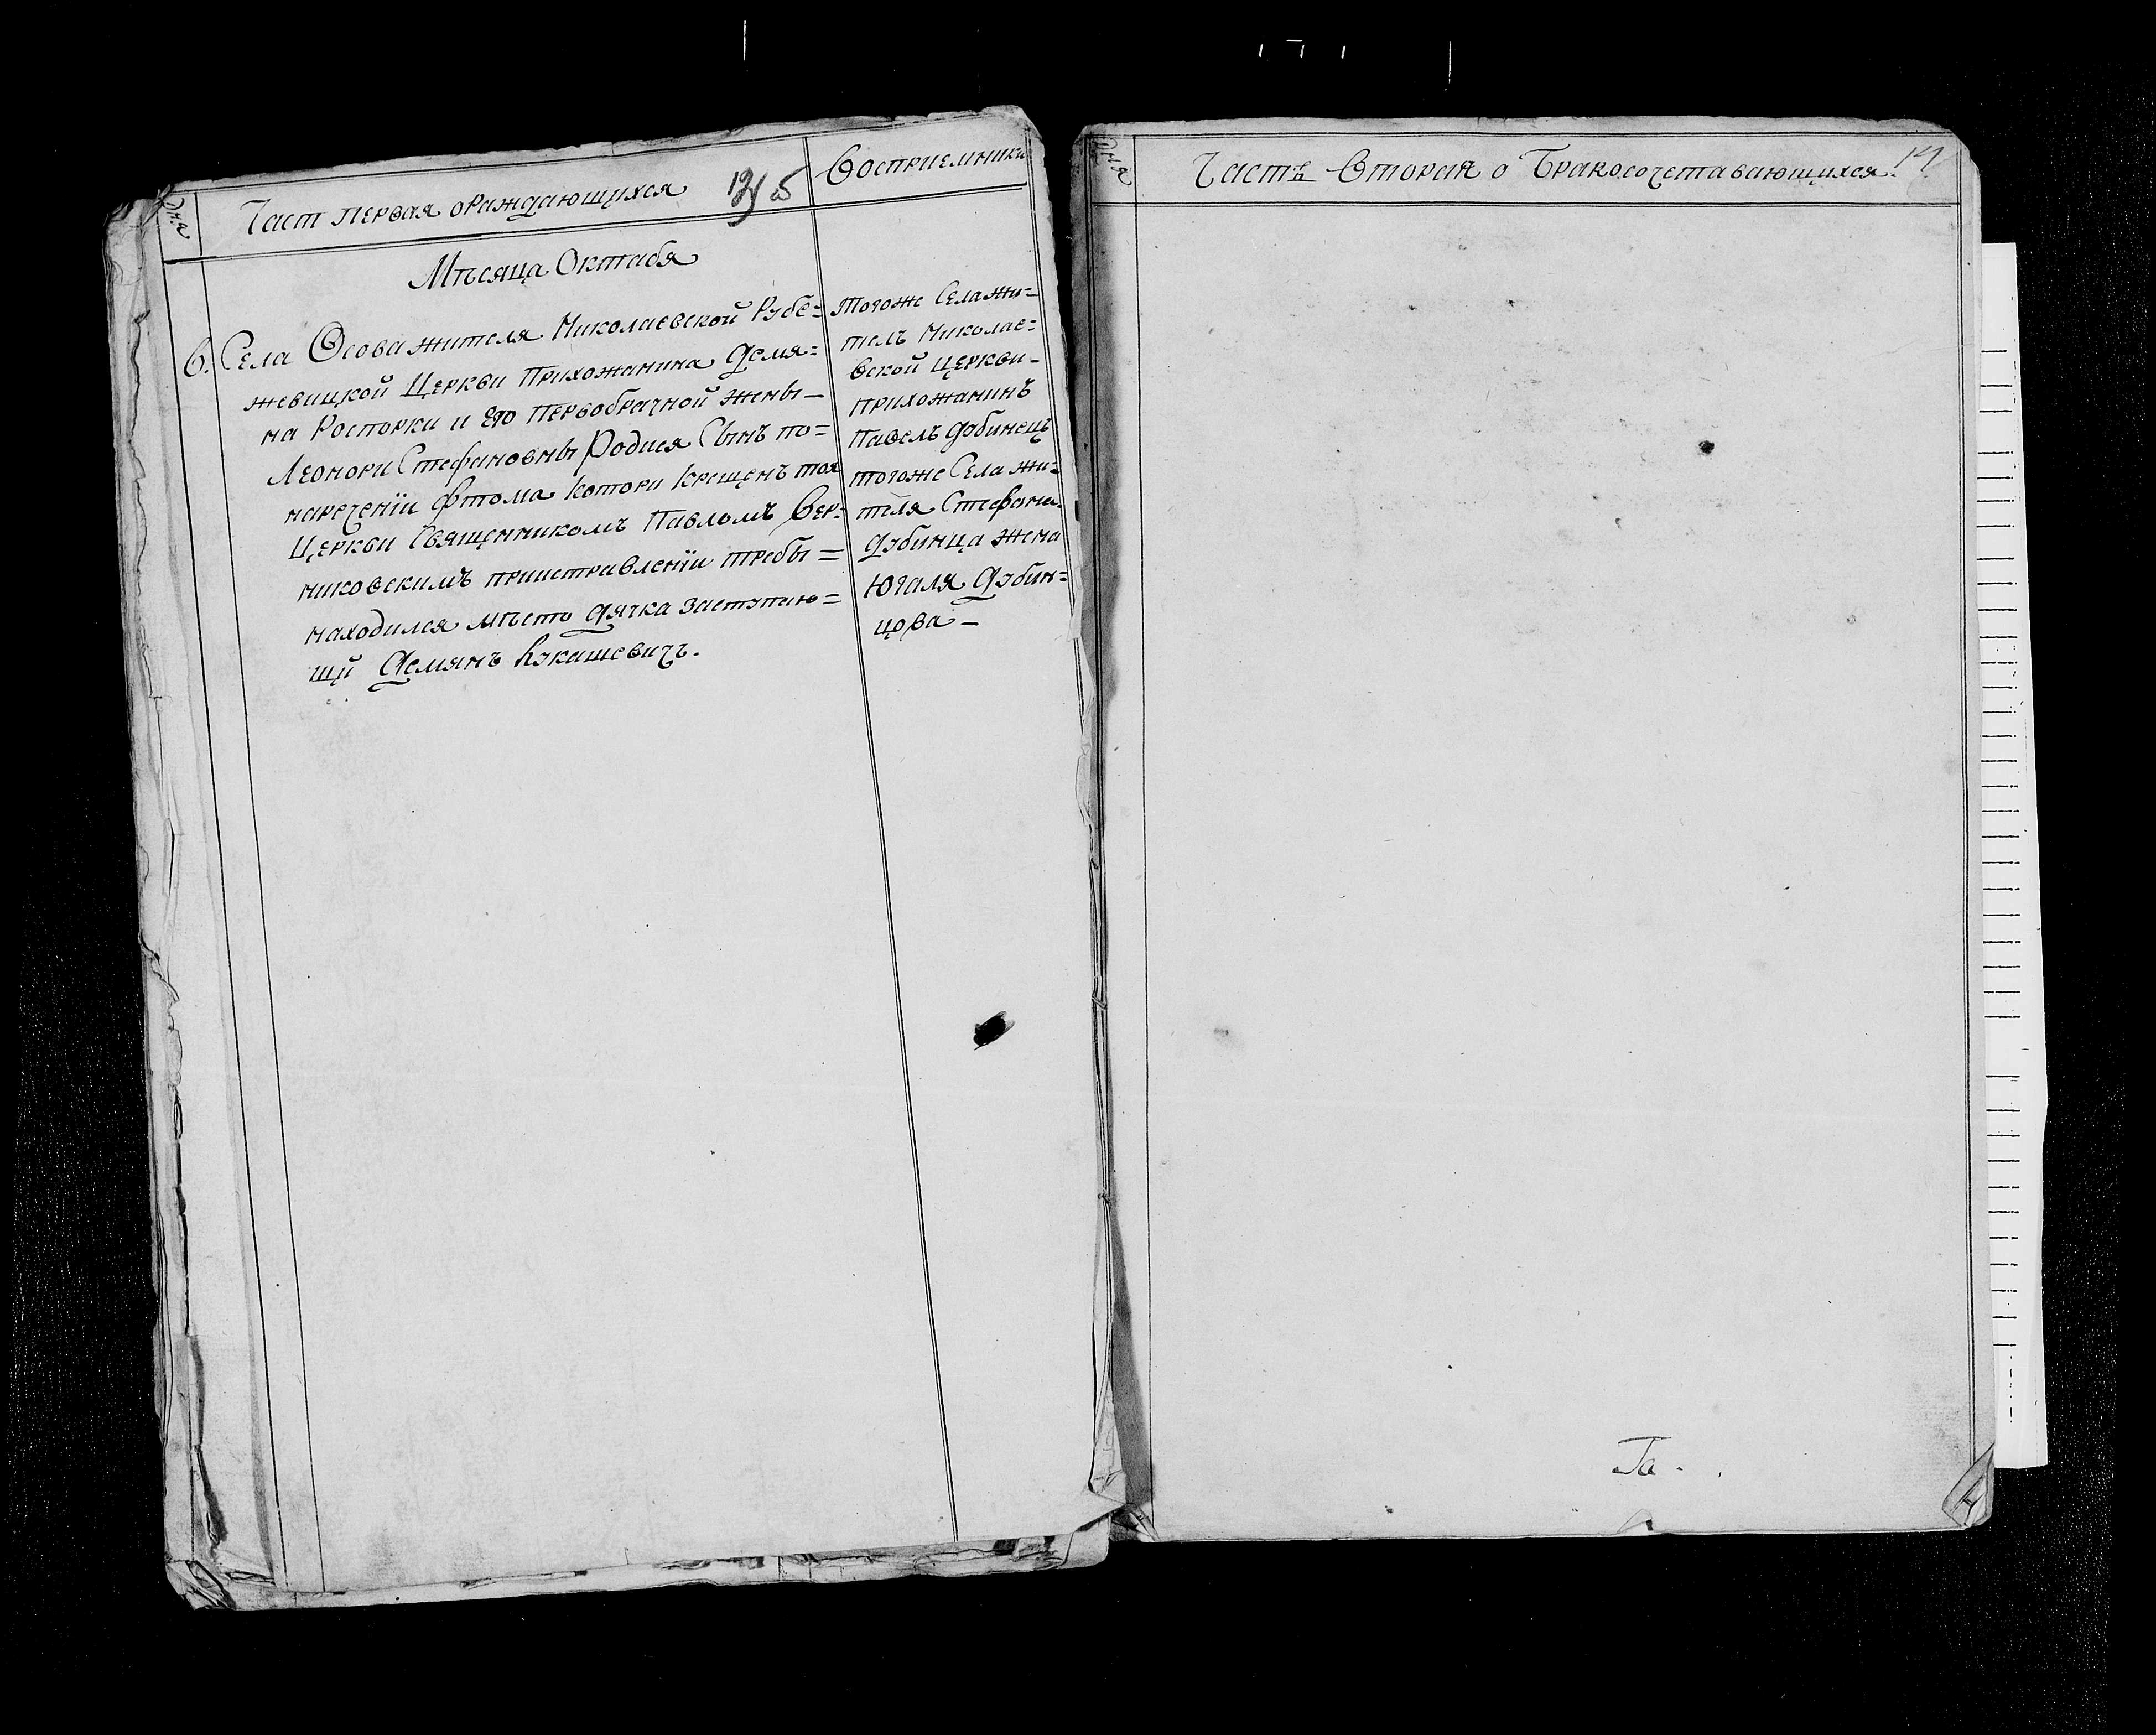 Дня
Част первая ораждающихся
Восприемники
Мѣсяца Октабя
6. Села Осова жителя Николаевской Рубе=
жевицкой Церкви Прихожанина Демя=
на Росторки и Его первобрачной жены—
Леонори Стефановны Родися Сынъ по=
наречении Фтома котори крещенъ тоя
Церкви Священникомъ Павломъ Вер=
никовскимъ приистравленіи требы=
находился мѣсто дячка заступаю=
щи Демянъ Лукашевичъ.
Тогоже Села жи=
тель Николае=
вской Церкви—
прихожанинъ
Павелъ Дубинецъ
тогоже Села жи=
теля Стефана
Дубинца жена
Югаля Дубин=
цова—
Дня
Часть Вторая о Бракосочетавающихся.